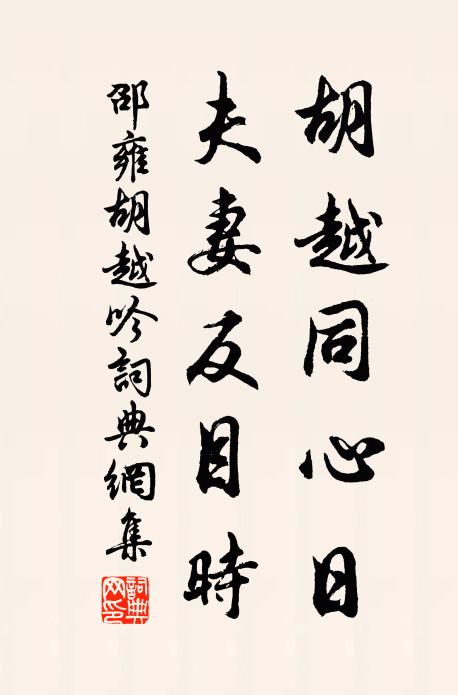 胡越同心日
夫妻反目時
邵雍胡越吟詞典網集
詞典網印